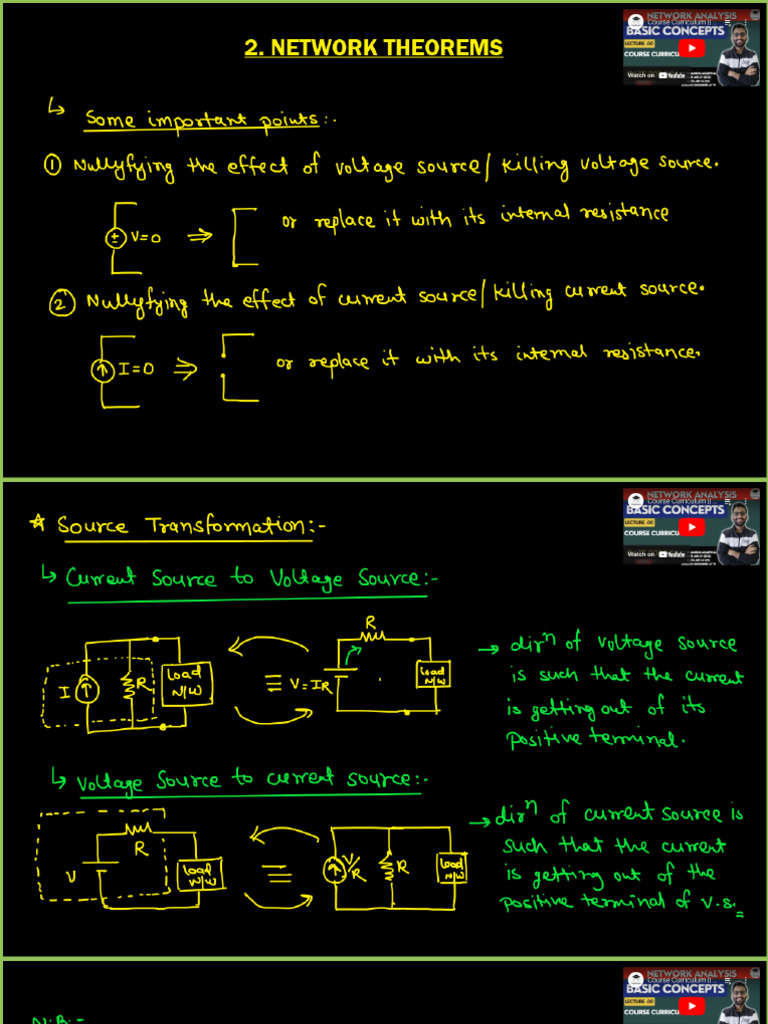 NETWORK ANALYSIS
Course Curriculum ||
BASIC CONCEPTS
LECTURE 00
COURSE CURRICU
Watch on YouTube
2. NETWORK THEOREMS
↳ Some important points:-.
① Nullyfying the effect of voltage source/ killing voltage source.
± V=0 ⇒ or replace it with its internal resistance
② Nullyfying the effect of current source/ killing current source.
I=0 ⇒ or replace it with its internal resistance.
NETWORK ANALYSIS
Course Curriculum ||
BASIC CONCEPTS
LECTURE 00
COURSE CURRICU
Watch on YouTube
☆ Source Transformation:-
↳ Current Source to Voltage Source:-
I R Load N/W ≡ V=IR R Load N/W
→ dirⁿ of voltage source
is such that the current
is getting out of its
positive terminal.
↳ Voltage Source to current source:-
V R Load N/W ≡ V/R R Load N/W
→ dirⁿ of current source is
such that the current
is getting out of the
positive terminal of v.s.
NETWORK ANALYSIS
Course Curriculum ||
BASIC CONCEPTS
LECTURE 00
COURSE CURRICU
N.B:-